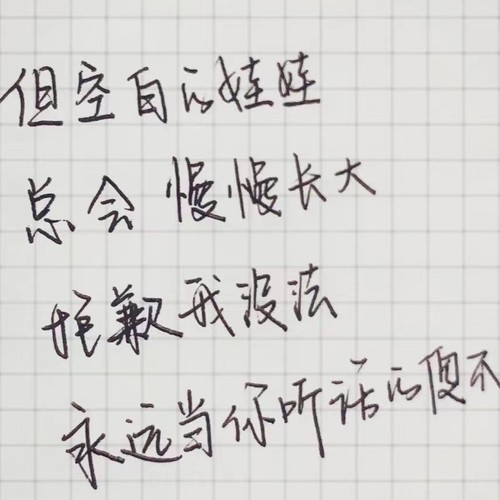 但空白的娃娃
总会慢慢长大
抱歉我没法
永远当你听话的傻